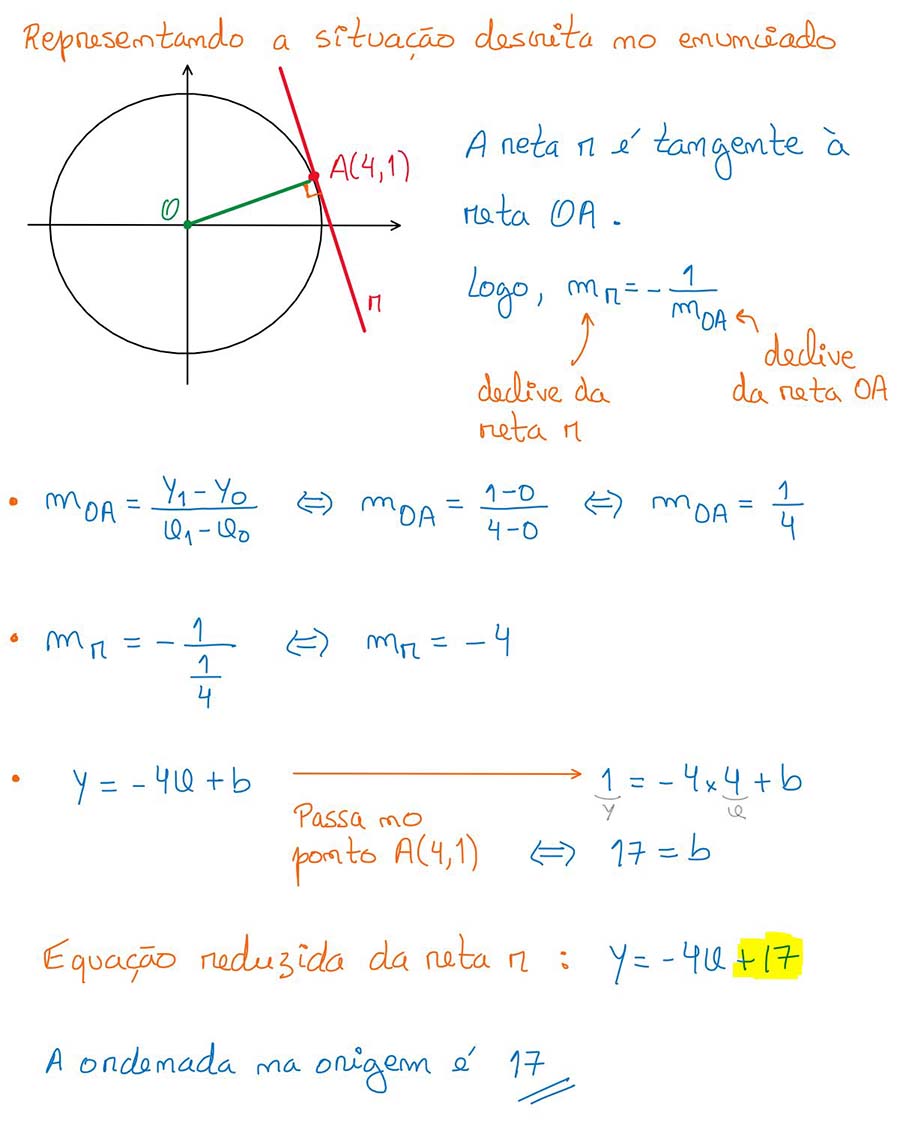 Representando a situação descrita no enunciado
A(4,1)
O
r
A reta r é tangente à
reta OA.
Logo, m_r = - 1/m_OA
declive da reta r
declive da reta OA
• m_OA = (y₁ - y₀)/(x₁ - x₀) ⇔ m_OA = (1-0)/(4-0) ⇔ m_OA = 1/4
• m_r = - 1/(1/4) ⇔ m_r = -4
• y = -4x + b → 1 = -4 × 4 + b
y x
Passa no
ponto A(4,1) ⇔ 17 = b
Equação reduzida da reta r : y = -4x +17
A ordenada na origem é 17